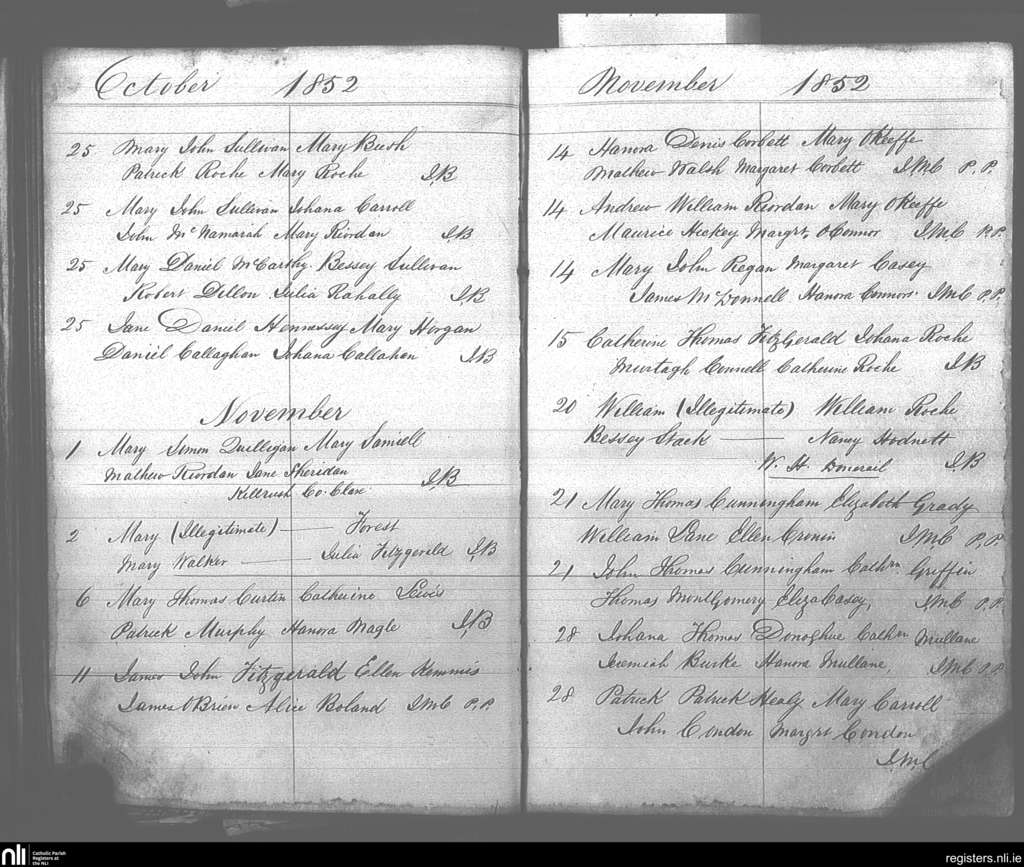 October 1852
25 Mary John Sullivan Mary Bush
Patrick Roche Mary Roche J,B
25 Mary John Sullivan Johana Carroll
John McNamarah Mary Riordan J,B
25 Mary Daniel McCarthy Bessey Sullivan
Robert Dillon Julia Rahally J,B
25 Jane Daniel Hennessey Mary Horgan
Daniel Callaghan Johana Callahan J,B
November
1 Mary Simon Quilligan Mary
Mathew Riordan Jane Sheridan
Killrush Co. Clare J,B
2 Mary (Illegitimate) — Forest
Mary Walker — Julia Fitzgerald J,B
6 Mary Thomas Curtin Catherine
Patrick Murphy Hanora Nagle J,B
11 James John Fitzgerald Ellen
James O'Brien Alice Boland J.McC P.P
November 1852
14 Hanora Denis Corbett Mary O'Keeffe
Mathew Walsh Margaret Corbett J.McC P.P.
14 Andrew William Reordan Mary O'Keeffe
Maurice Hickey Margrt. O'Connor J.McC P.P.
14 Mary John Regan Margaret Casey
James McDonnell Hanora Connors J.McC P.P.
15 Catherine Thomas FitzGerald Johana Roche
Murtagh Connell Catherine Roche J,B
20 William (Illegitimate) William Roche
Bessey Stack — Nancy Hodnett
W. H. Donerail J,B
21 Mary Thomas Cunningham Elizabeth Grady
William Lane Ellen Cronin J.McC P.P.
21 John Thomas Cunningham Cathrn Griffin
Thomas Montgomery Eliza Casey, J.McC P.P.
28 Johana Thomas Donoghue Cathrn Mullane
Jeremiah Burke Hanora Mullane, J.McC P.P.
28 Patrick Patrick Healy Mary Carroll
John Condon Margrt Condon
J.McC
nli Catholic Parish
Registers at
the NLI
registers.nli.ie